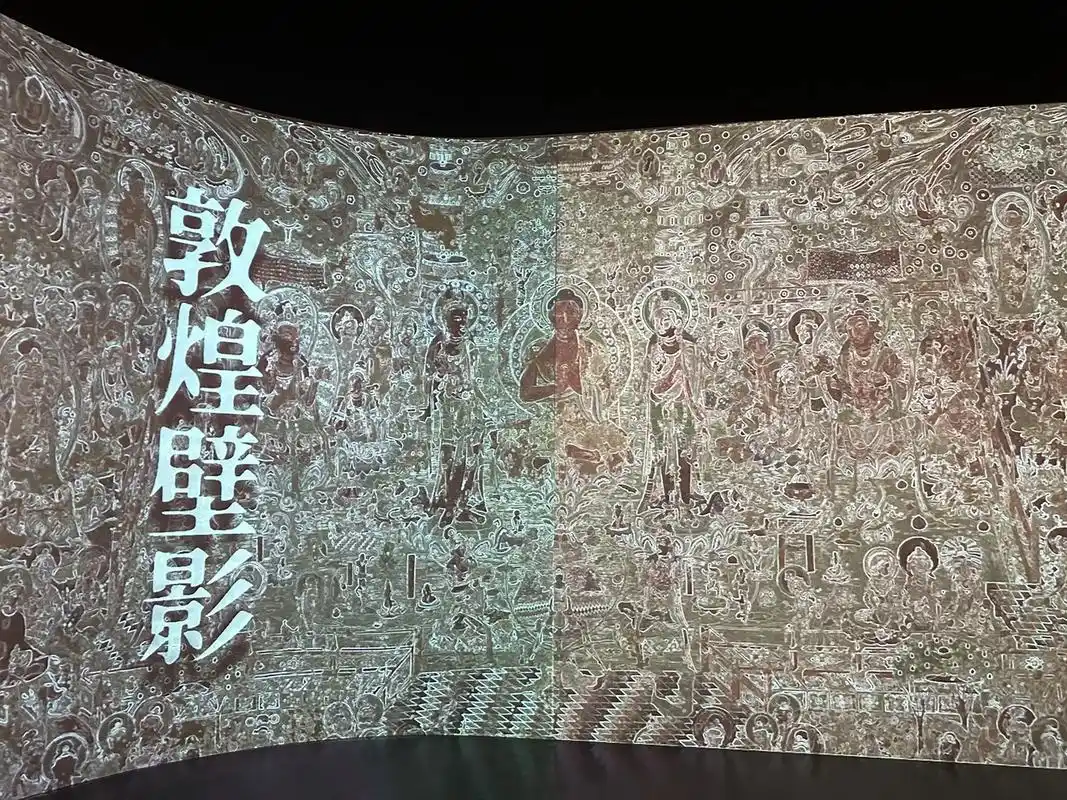 敦煌壁影